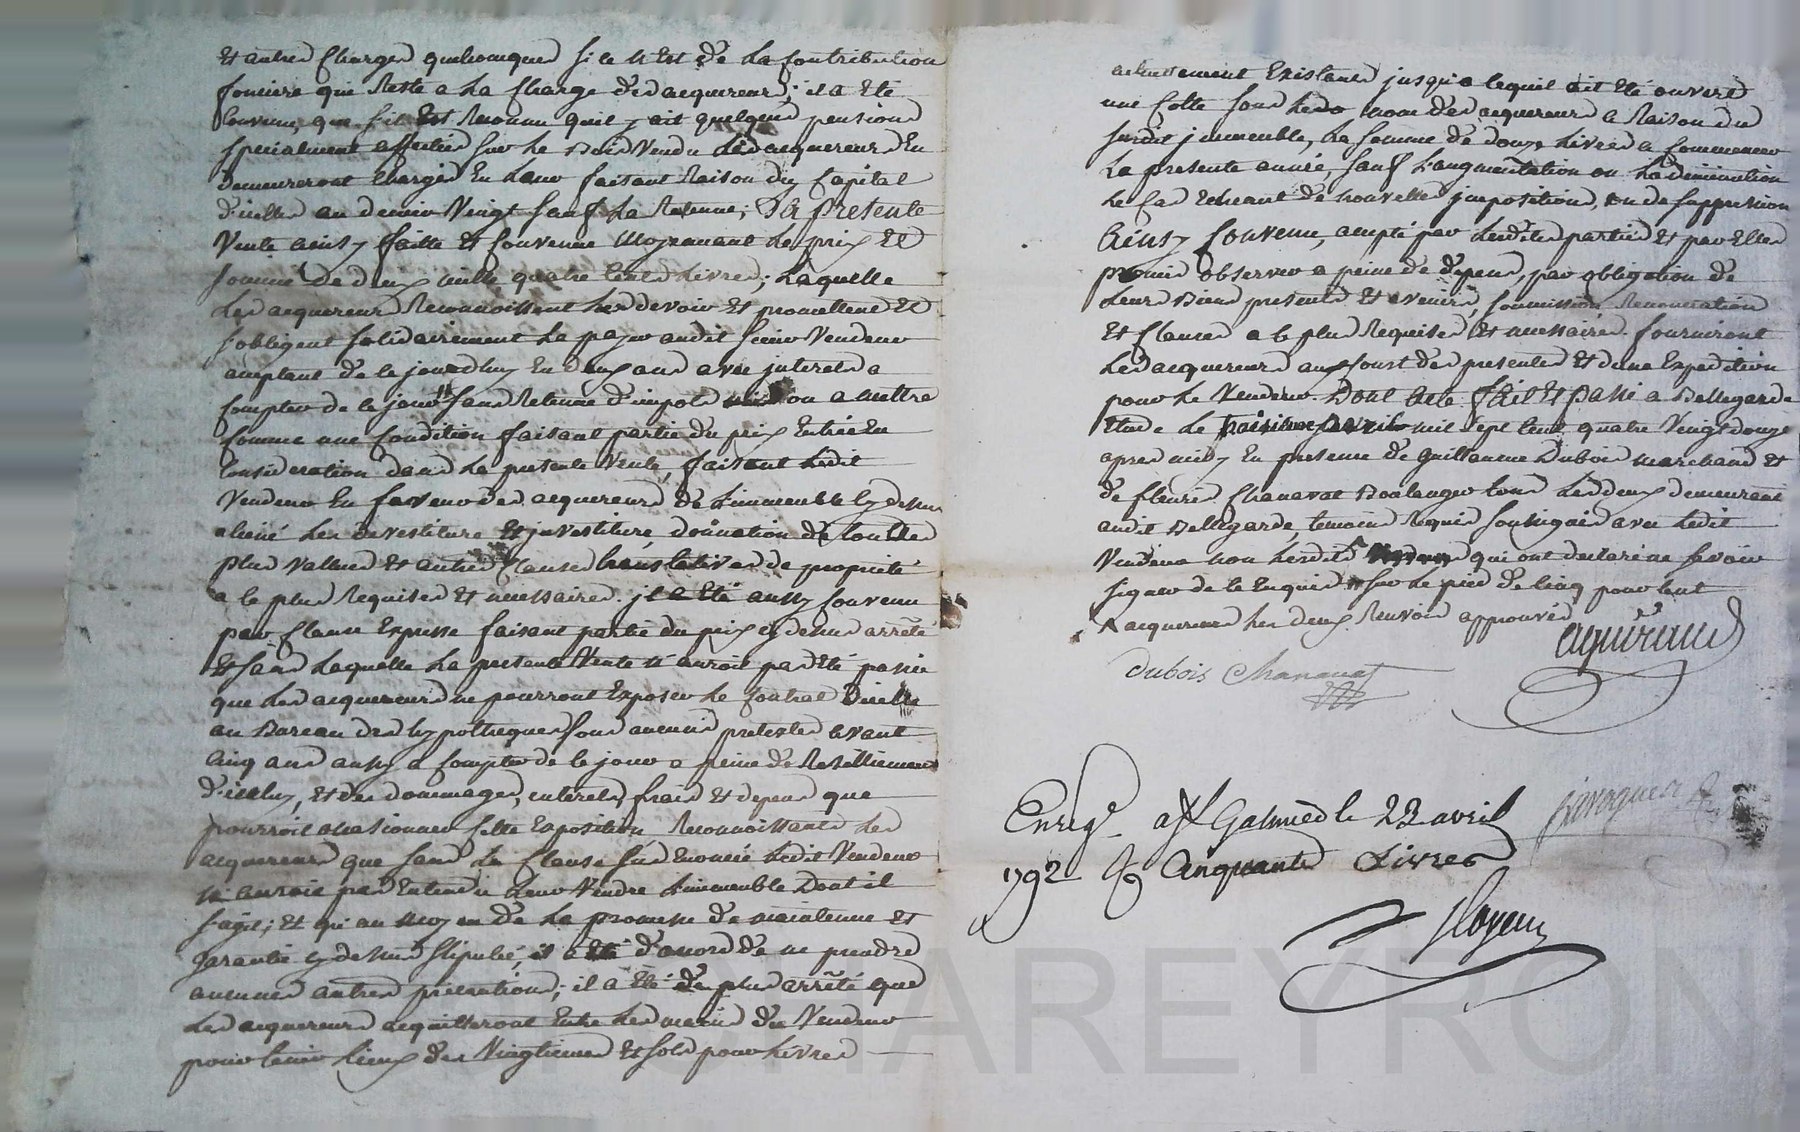 et autres charges quelconques si ce n'est de la contribution
fonciere qui reste a la charge des acquereurs; il a été
convenu que s'il est reconnu quil y ait quelques pensions
specialement affectées sur le bien vendu lesd acquereurs en
demeureront chargés en leur faisant raison du capital
d'icelles au denier vingt sauf la retenue; La presente
vente ainsy faitte et convenue moyennant le prix et
somme de deux mille quatre cent livres; laquelle
les acquereurs reconnoissent les devoir et promettent et
s'obligent solidairement la payer audit sieur vendeur
acceptant de ce jourdhuy en deux ans avec interets a
compter de ce jour sans retenue d'impots mis ou a mettre
comme une condition faisant partie du prix entrée en
consideration dans la presente vente, faisant ledit
vendeur en faveur des acquereurs de l'immeuble cy dessus
aliené les devestiture et investiture, donnation de toutte
plus vallue et autres clauses translatives de proprieté
a ce plus requises et necessaires. il a été aussy convenu
par clause expresse faisant partie du prix cy dessus arrêté
et sans laquelle la presente vente n'auroit pas été passée
que les acquereurs ne pourront exposer le contrat d'icelle
au Bureau des hypotheques sous aucuns pretextes avant
cinq ans aussy a compter de ce jour a peine de resiliement
d'icelluy, et des dommages, interets, frais et depens que
pourroit occasionner cette exposition reconnoissants les
acquereurs que sans la clause sus enoncée ledit vendeur
n'auroit pas entendu leur vendre l'immeuble dont il
s'agit; et qu'au moyen de la promesse de maintenue et
garantie cy dessus stipulée, il a été d'acord de ne prendre
aucunes autres precautions; il a été de plus arrêté que
les acquereurs acquitteront entre les mains du vendeur
pour tenir lieux des vingtiemes et sols pour livres
actuellement existants jusqu'a cequil ait été ouvert
une cotte sous le nom des acquereurs a raison du
susdit immeuble, la somme de douze livres a commencer
la presente année, sauf l'augmentation ou la diminution
le cas echeant de nouvelles impositions, ou de suppression
Ainsy convenu, accepté par lesdites parties et par elles
promis observer a peine de depens, par obligation de
leurs biens presents et avenirs, soumission, renonciation
et clauses a ce plus requises et necessaires. fourniront
les acquereurs aux cout des presentes et d'une expedition
pour le vendeur. Dont acte fait et passé a Bellegarde
étude le troisieme avril mil sept cent quatre vingt douze
apres midy en presence de Guillaume Dubois marchand et
de fleury Chanavat Boulanger tous lesdeux demeurants
audit Bellegarde, temoins requis soussignés avec ledit
vendeur non lesdits qui ont declaré ne savoir
signer de ce enquis sur le pied de cinq pour cent
acquereurs les deux renvois approuvés
Dubois Chanavat
Enregé. a St Galmier le 23 avril
1792 Cinquante Livres